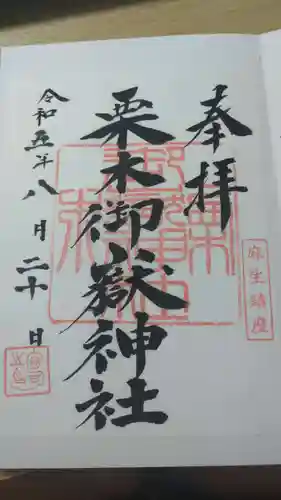 奉拝
栗木御嶽神社
令和五年八月二十日
麻生鎮座